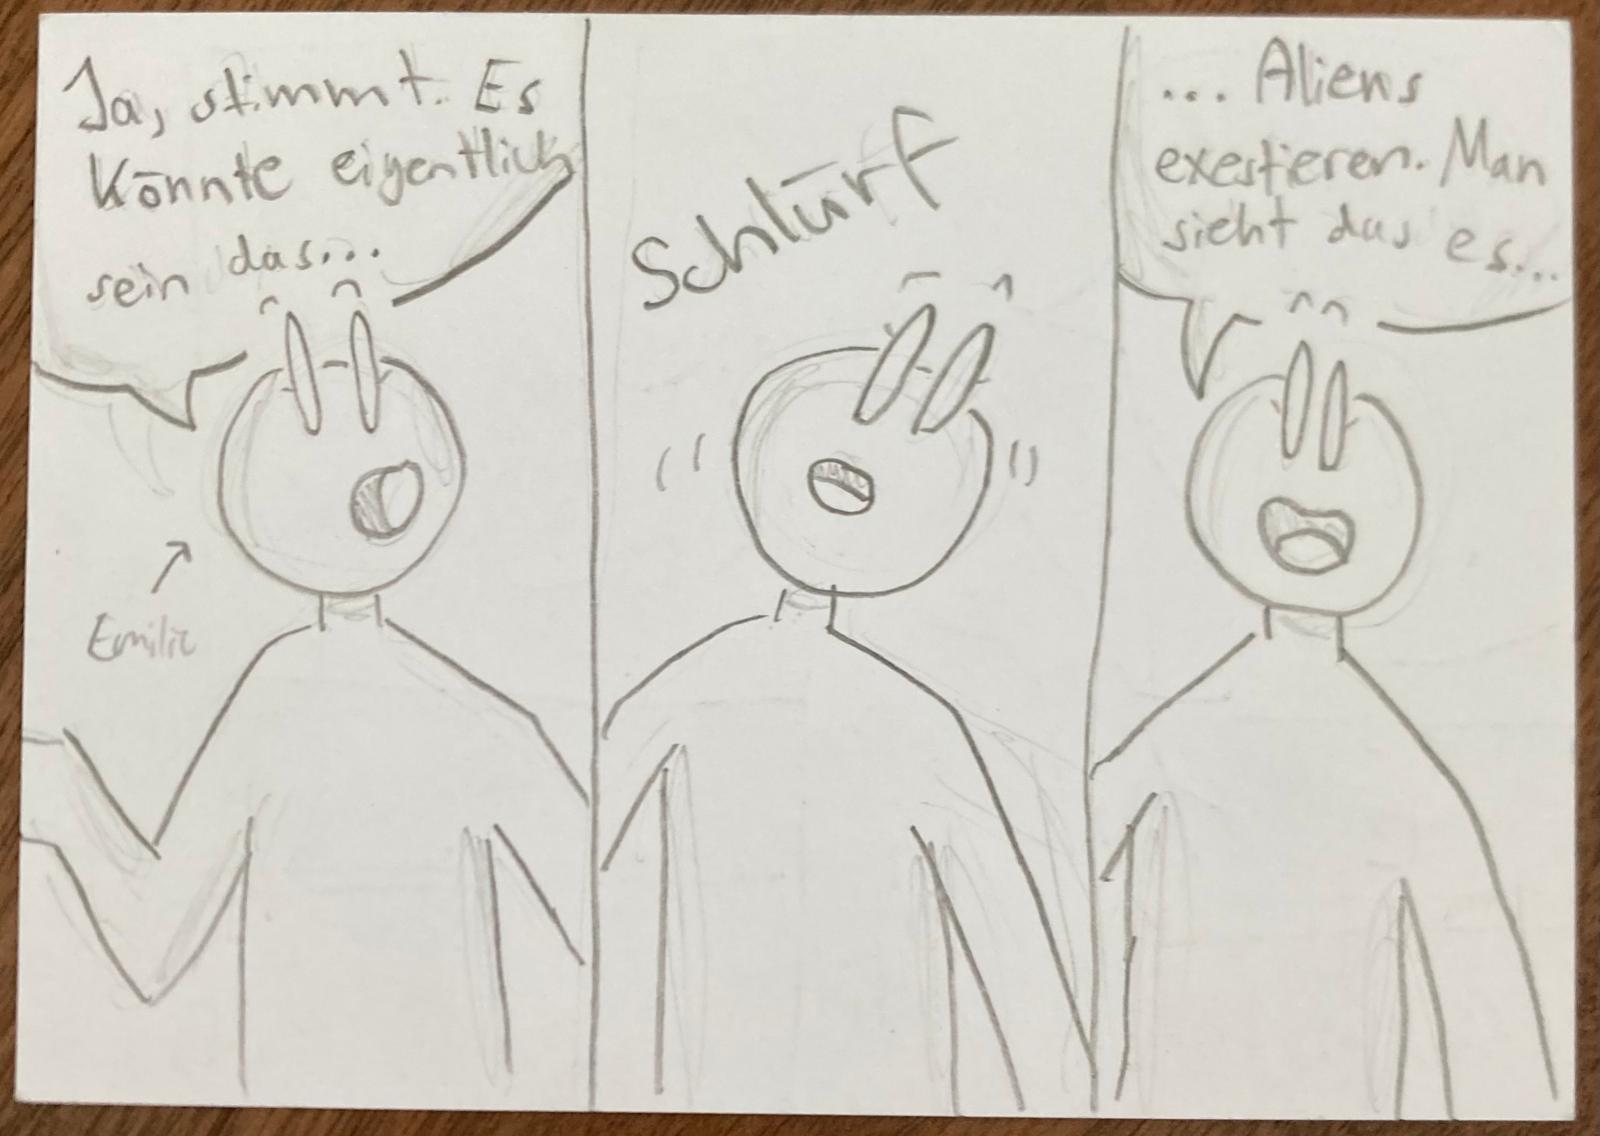 Ja, stimmt. Es
Könnte eigentlich
sein das...
Emilie
Schlürf
... Aliens
exestieren. Man
sieht das es...